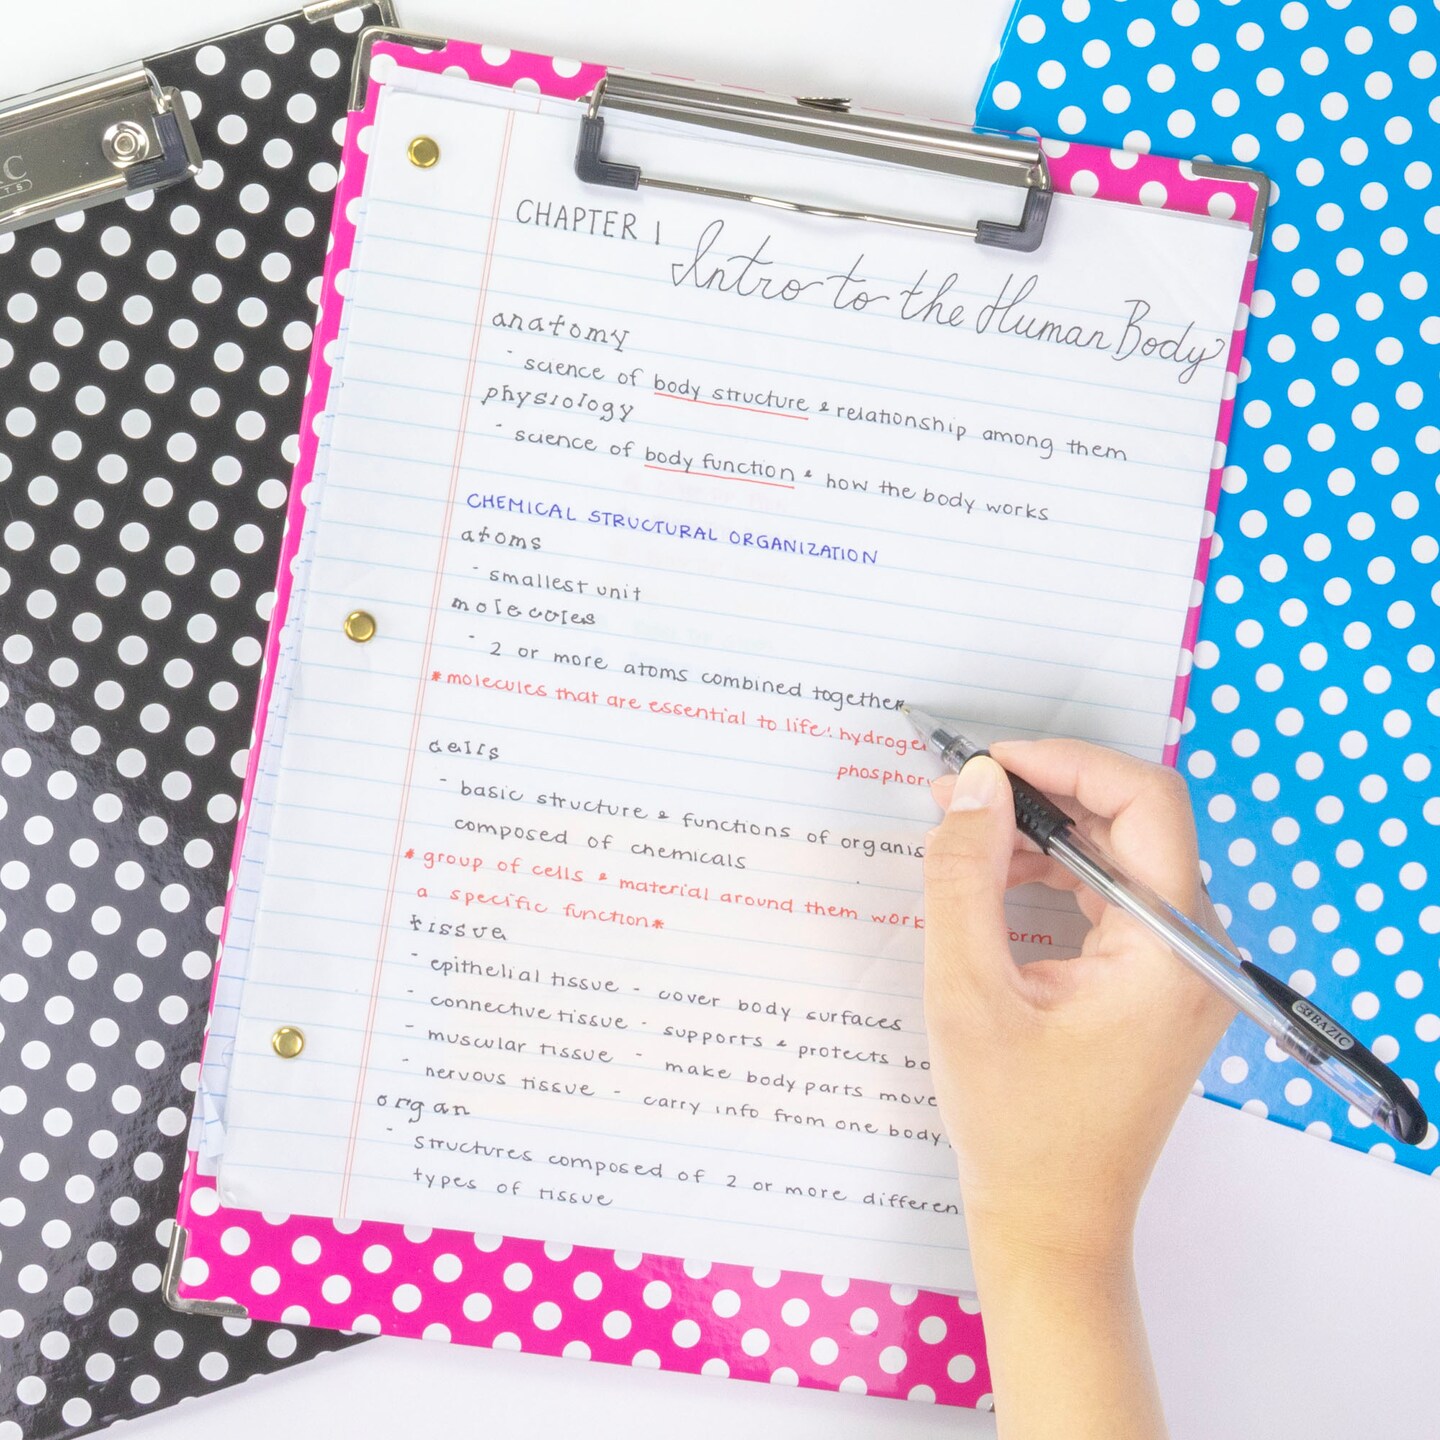 CHAPTER 1 Intro to the Human Body
anatomy
- science of body structure & relationship among them
physiology
- science of body function & how the body works
CHEMICAL STRUCTURAL ORGANIZATION
atoms
- smallest unit
molecules
- 2 or more atoms combined together
*molecules that are essential to life: hydroge
phosphor
cells
- basic structure & functions of organis
composed of chemicals
*group of cells & material around them work form
a specific function*
tissue
- epithelial tissue - cover body surfaces
- connective tissue - supports & protects bo
- muscular tissue - make body parts move
- nervous tissue - carry info from one body
organ
- structures composed of 2 or more differen
types of tissue
BAZIC